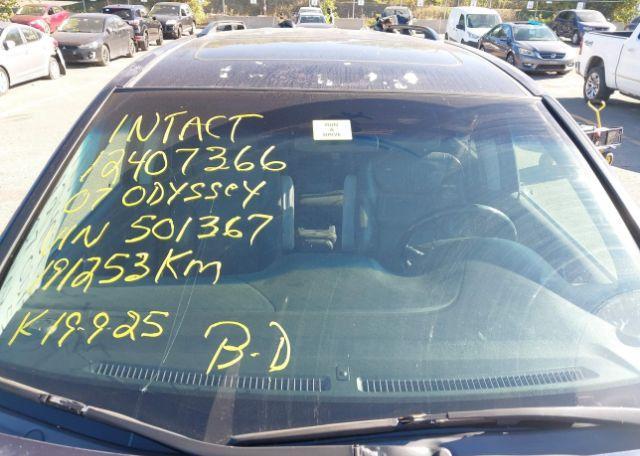 INTACT
12407366
07 ODYSSEY
VIN 501367
191253 Km
K-19-9-25
B-D
RUN
&
DRIVE